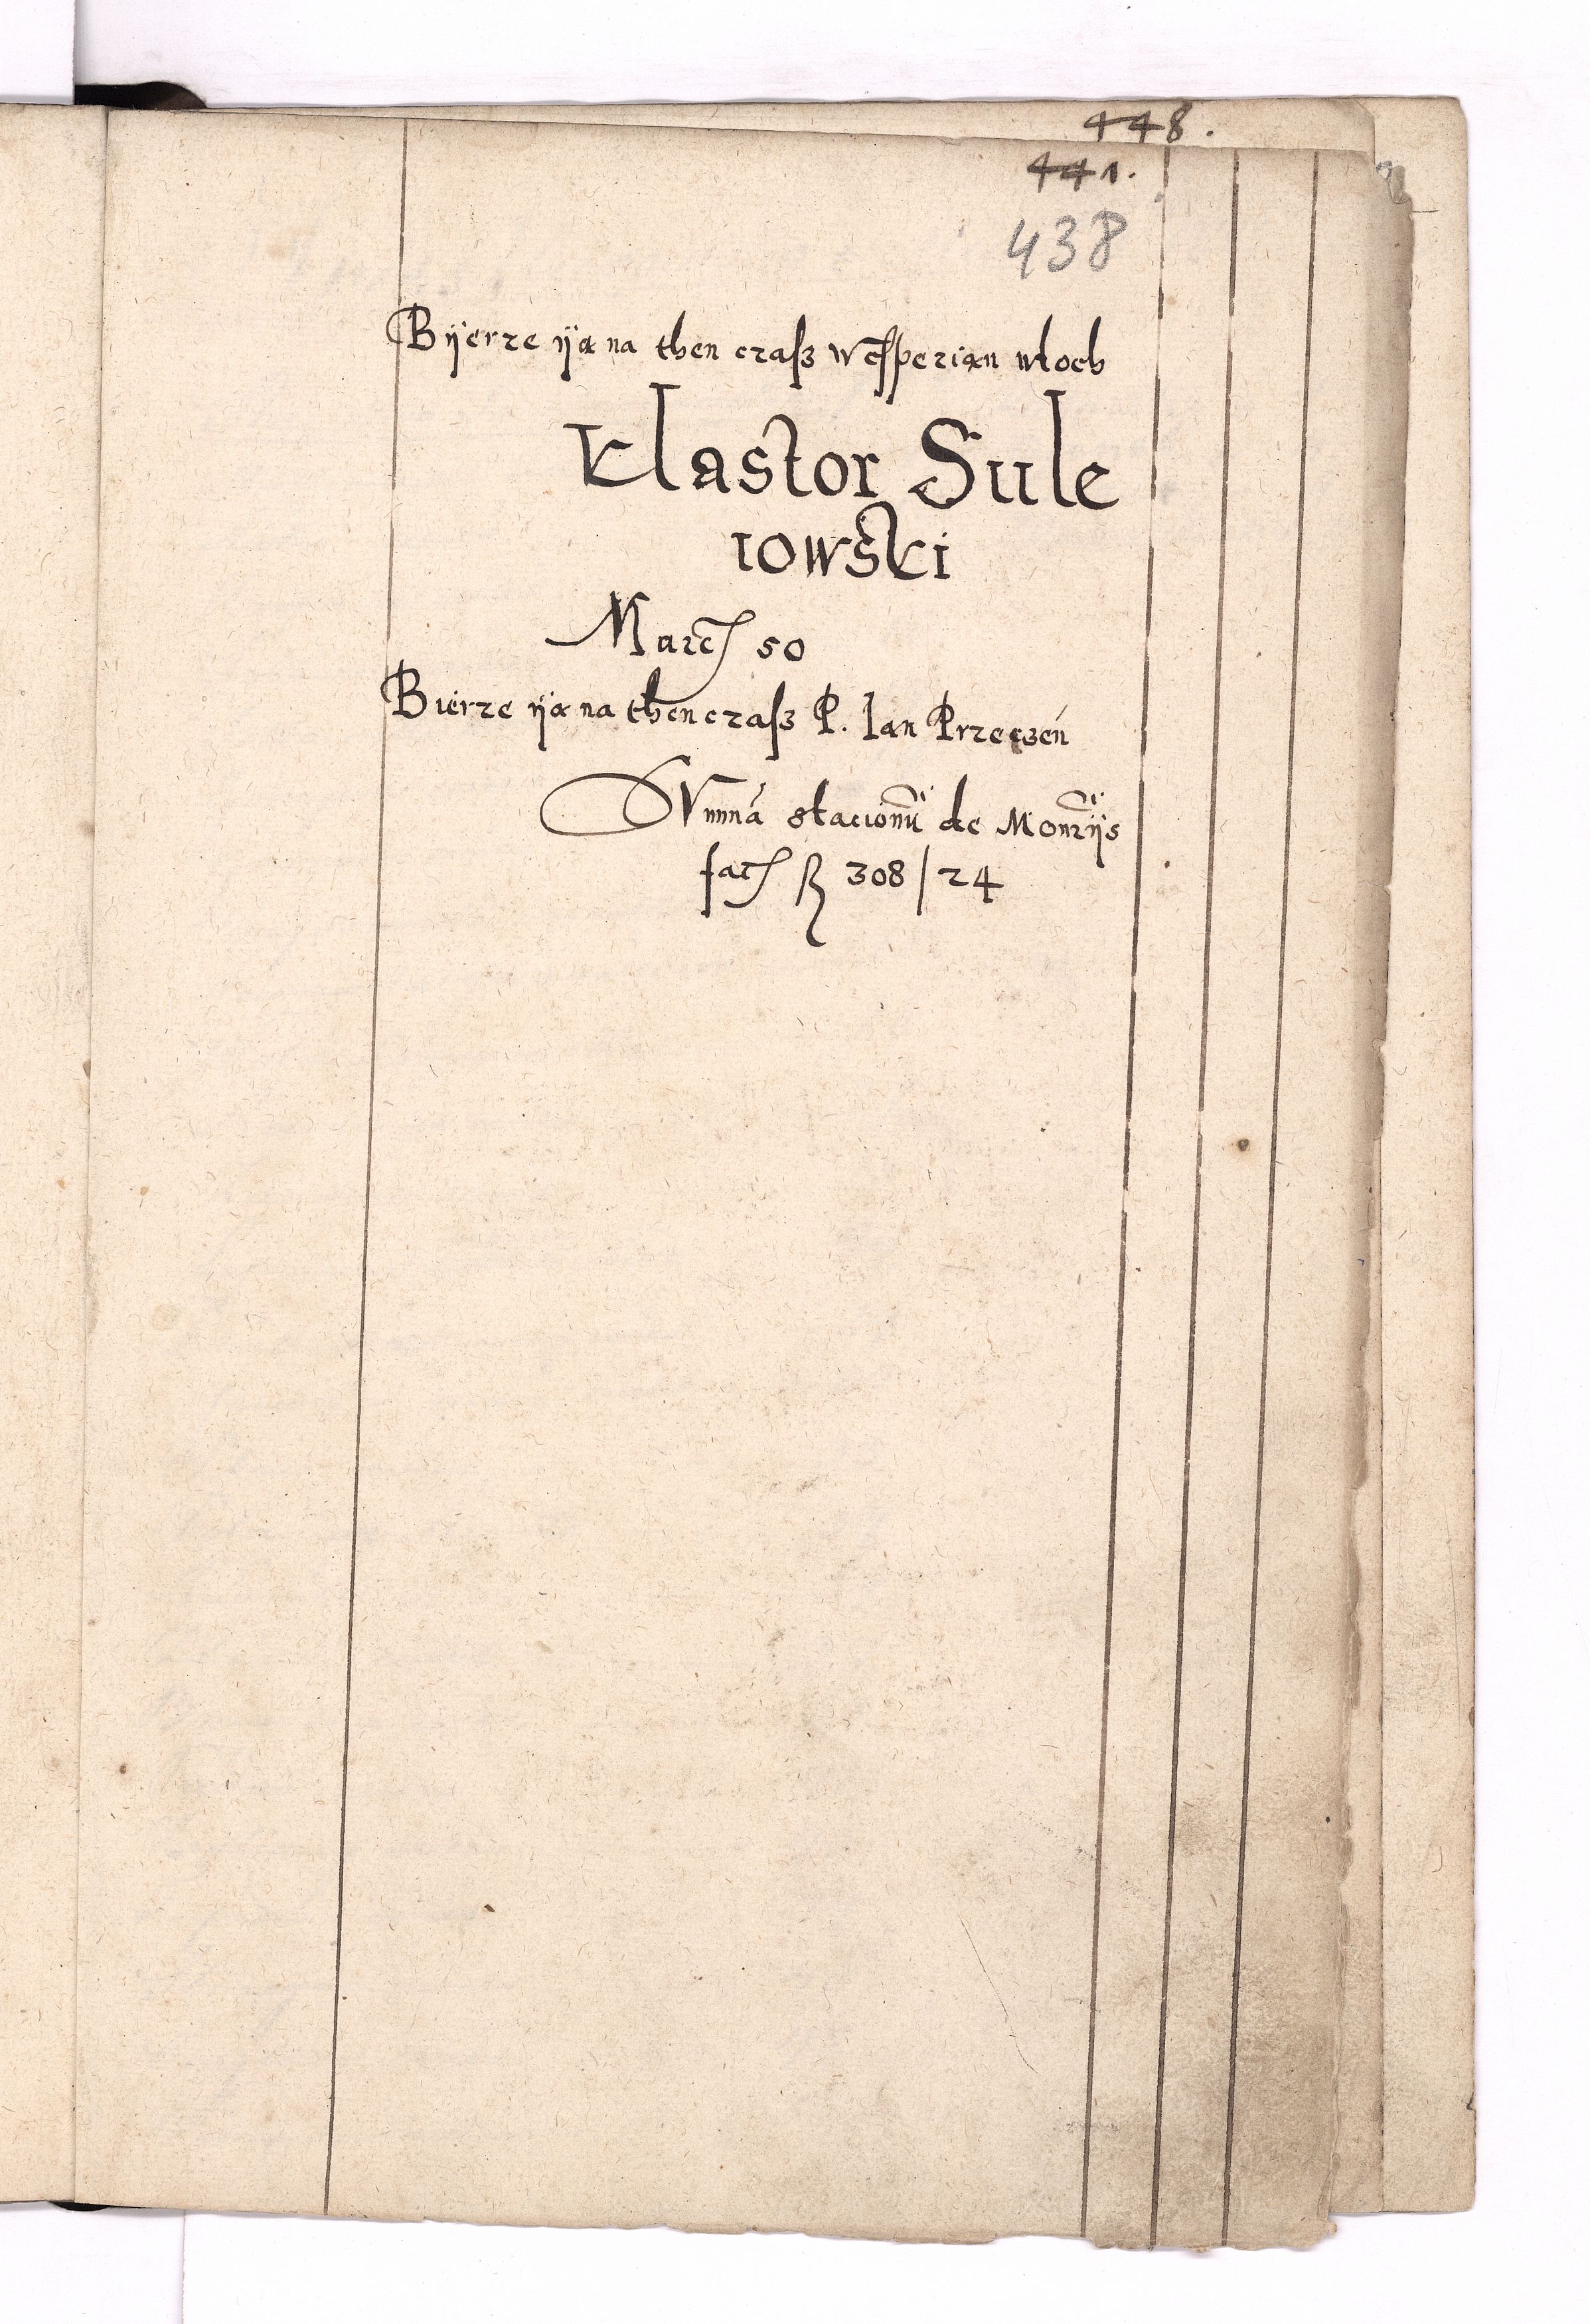 448.
441.
438
Bÿerze ÿą na then czasz Wesperian włoch
Klastor Sule
iowski
Marc 50
Bierze ÿą na then czasz P. Ian Przeczen
Summa stacionu de Monrÿs
fac 308/24